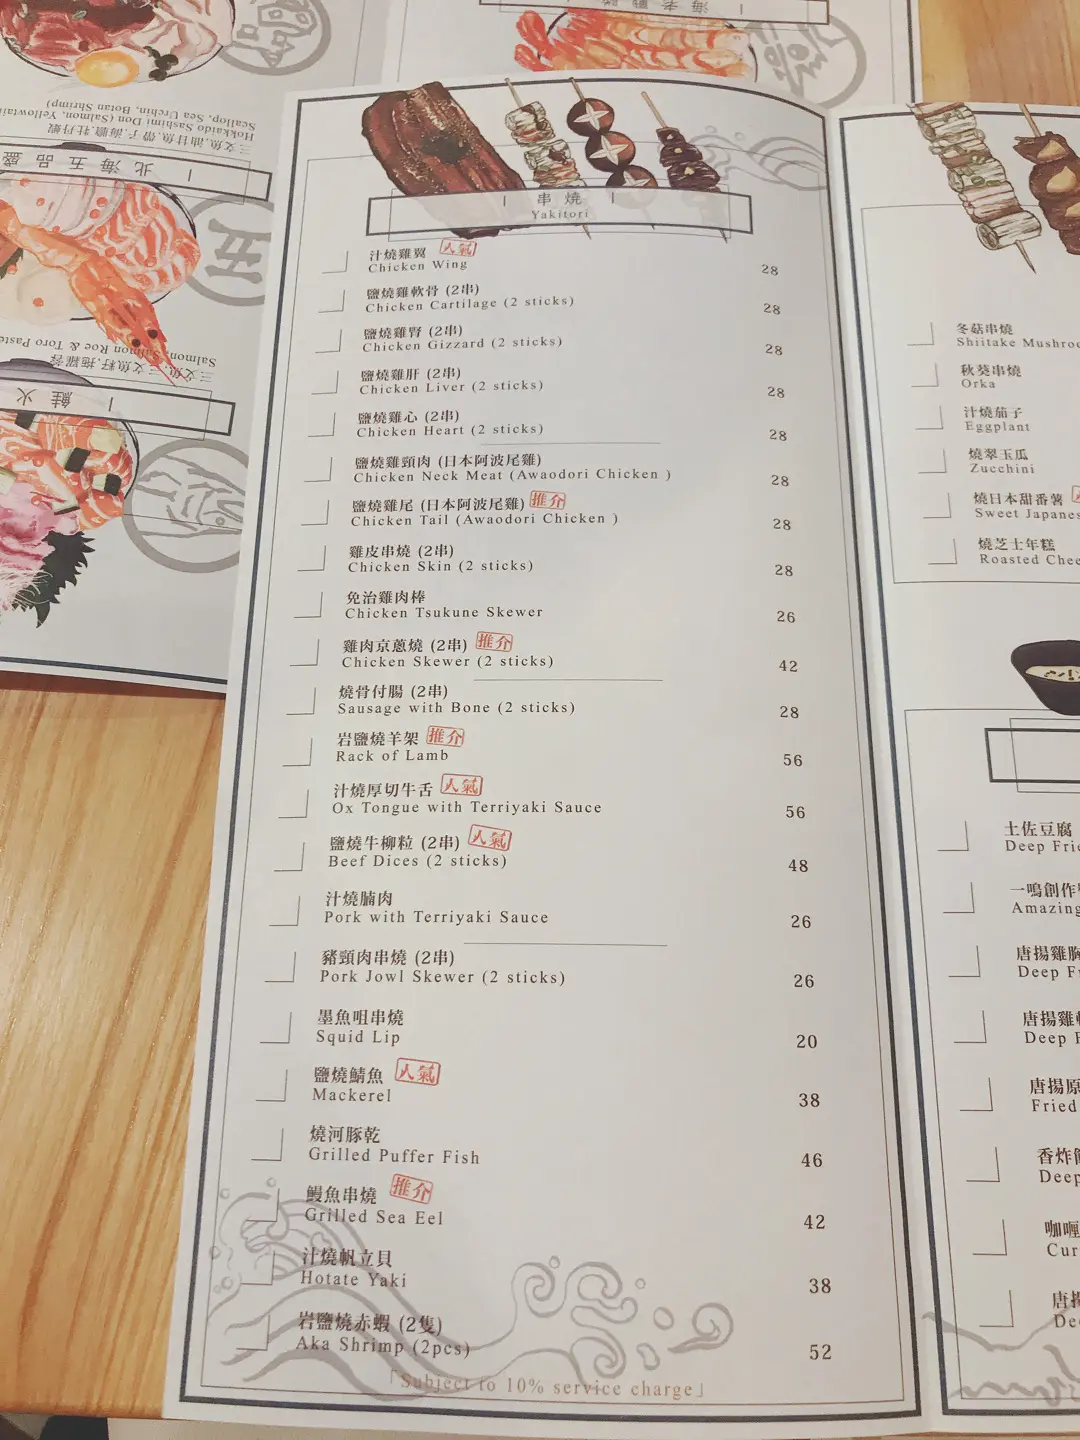 海老
Hokkaido Sashimi Don (Salmon, Yellowtai
Scallop, Sea Urchin, Botan Shrimp)
三文魚.油甘魚.帶子.海膽.牡丹蝦
北海五品盛
五
Salmon, Salmon Roe & Toro Paste
三文魚.三文魚籽.拖羅蓉
火鮭
串燒
Yakitori
汁燒雞翼 人氣
Chicken Wing 28
鹽燒雞軟骨 (2串)
Chicken Cartilage (2 sticks) 28
鹽燒雞腎 (2串)
Chicken Gizzard (2 sticks) 28
鹽燒雞肝 (2串)
Chicken Liver (2 sticks) 28
鹽燒雞心 (2串)
Chicken Heart (2 sticks) 28
鹽燒雞頸肉 (日本阿波尾雞)
Chicken Neck Meat (Awaodori Chicken ) 28
鹽燒雞尾 (日本阿波尾雞) 推介
Chicken Tail (Awaodori Chicken ) 28
雞皮串燒 (2串)
Chicken Skin (2 sticks) 28
免治雞肉棒
Chicken Tsukune Skewer 26
雞肉京蔥燒 (2串) 推介
Chicken Skewer (2 sticks) 42
燒骨付腸 (2串)
Sausage with Bone (2 sticks) 28
岩鹽燒羊架 推介
Rack of Lamb 56
汁燒厚切牛舌 人氣
Ox Tongue with Terriyaki Sauce 56
鹽燒牛柳粒 (2串) 人氣
Beef Dices (2 sticks) 48
汁燒腩肉
Pork with Terriyaki Sauce 26
豬頸肉串燒 (2串)
Pork Jowl Skewer (2 sticks) 26
墨魚咀串燒
Squid Lip 20
鹽燒鯖魚 人氣
Mackerel 38
燒河豚乾
Grilled Puffer Fish 46
鰻魚串燒 推介
Grilled Sea Eel 42
汁燒帆立貝
Hotate Yaki 38
岩鹽燒赤蝦 (2隻)
Aka Shrimp (2pcs) 52
「Subject to 10% service charge」
冬菇串燒
Shiitake Mushroo
秋葵串燒
Orka
汁燒茄子
Eggplant
燒翠玉瓜
Zucchini
燒日本甜番薯
Sweet Japanes
燒芝士年糕
Roasted Chee
土佐豆腐
Deep Frie
一鳴創作
Amazing
唐揚雞胸
Deep F
唐揚雞
Deep F
唐揚原
Fried
香炸
Deep
咖喱
Cur
唐揚
De